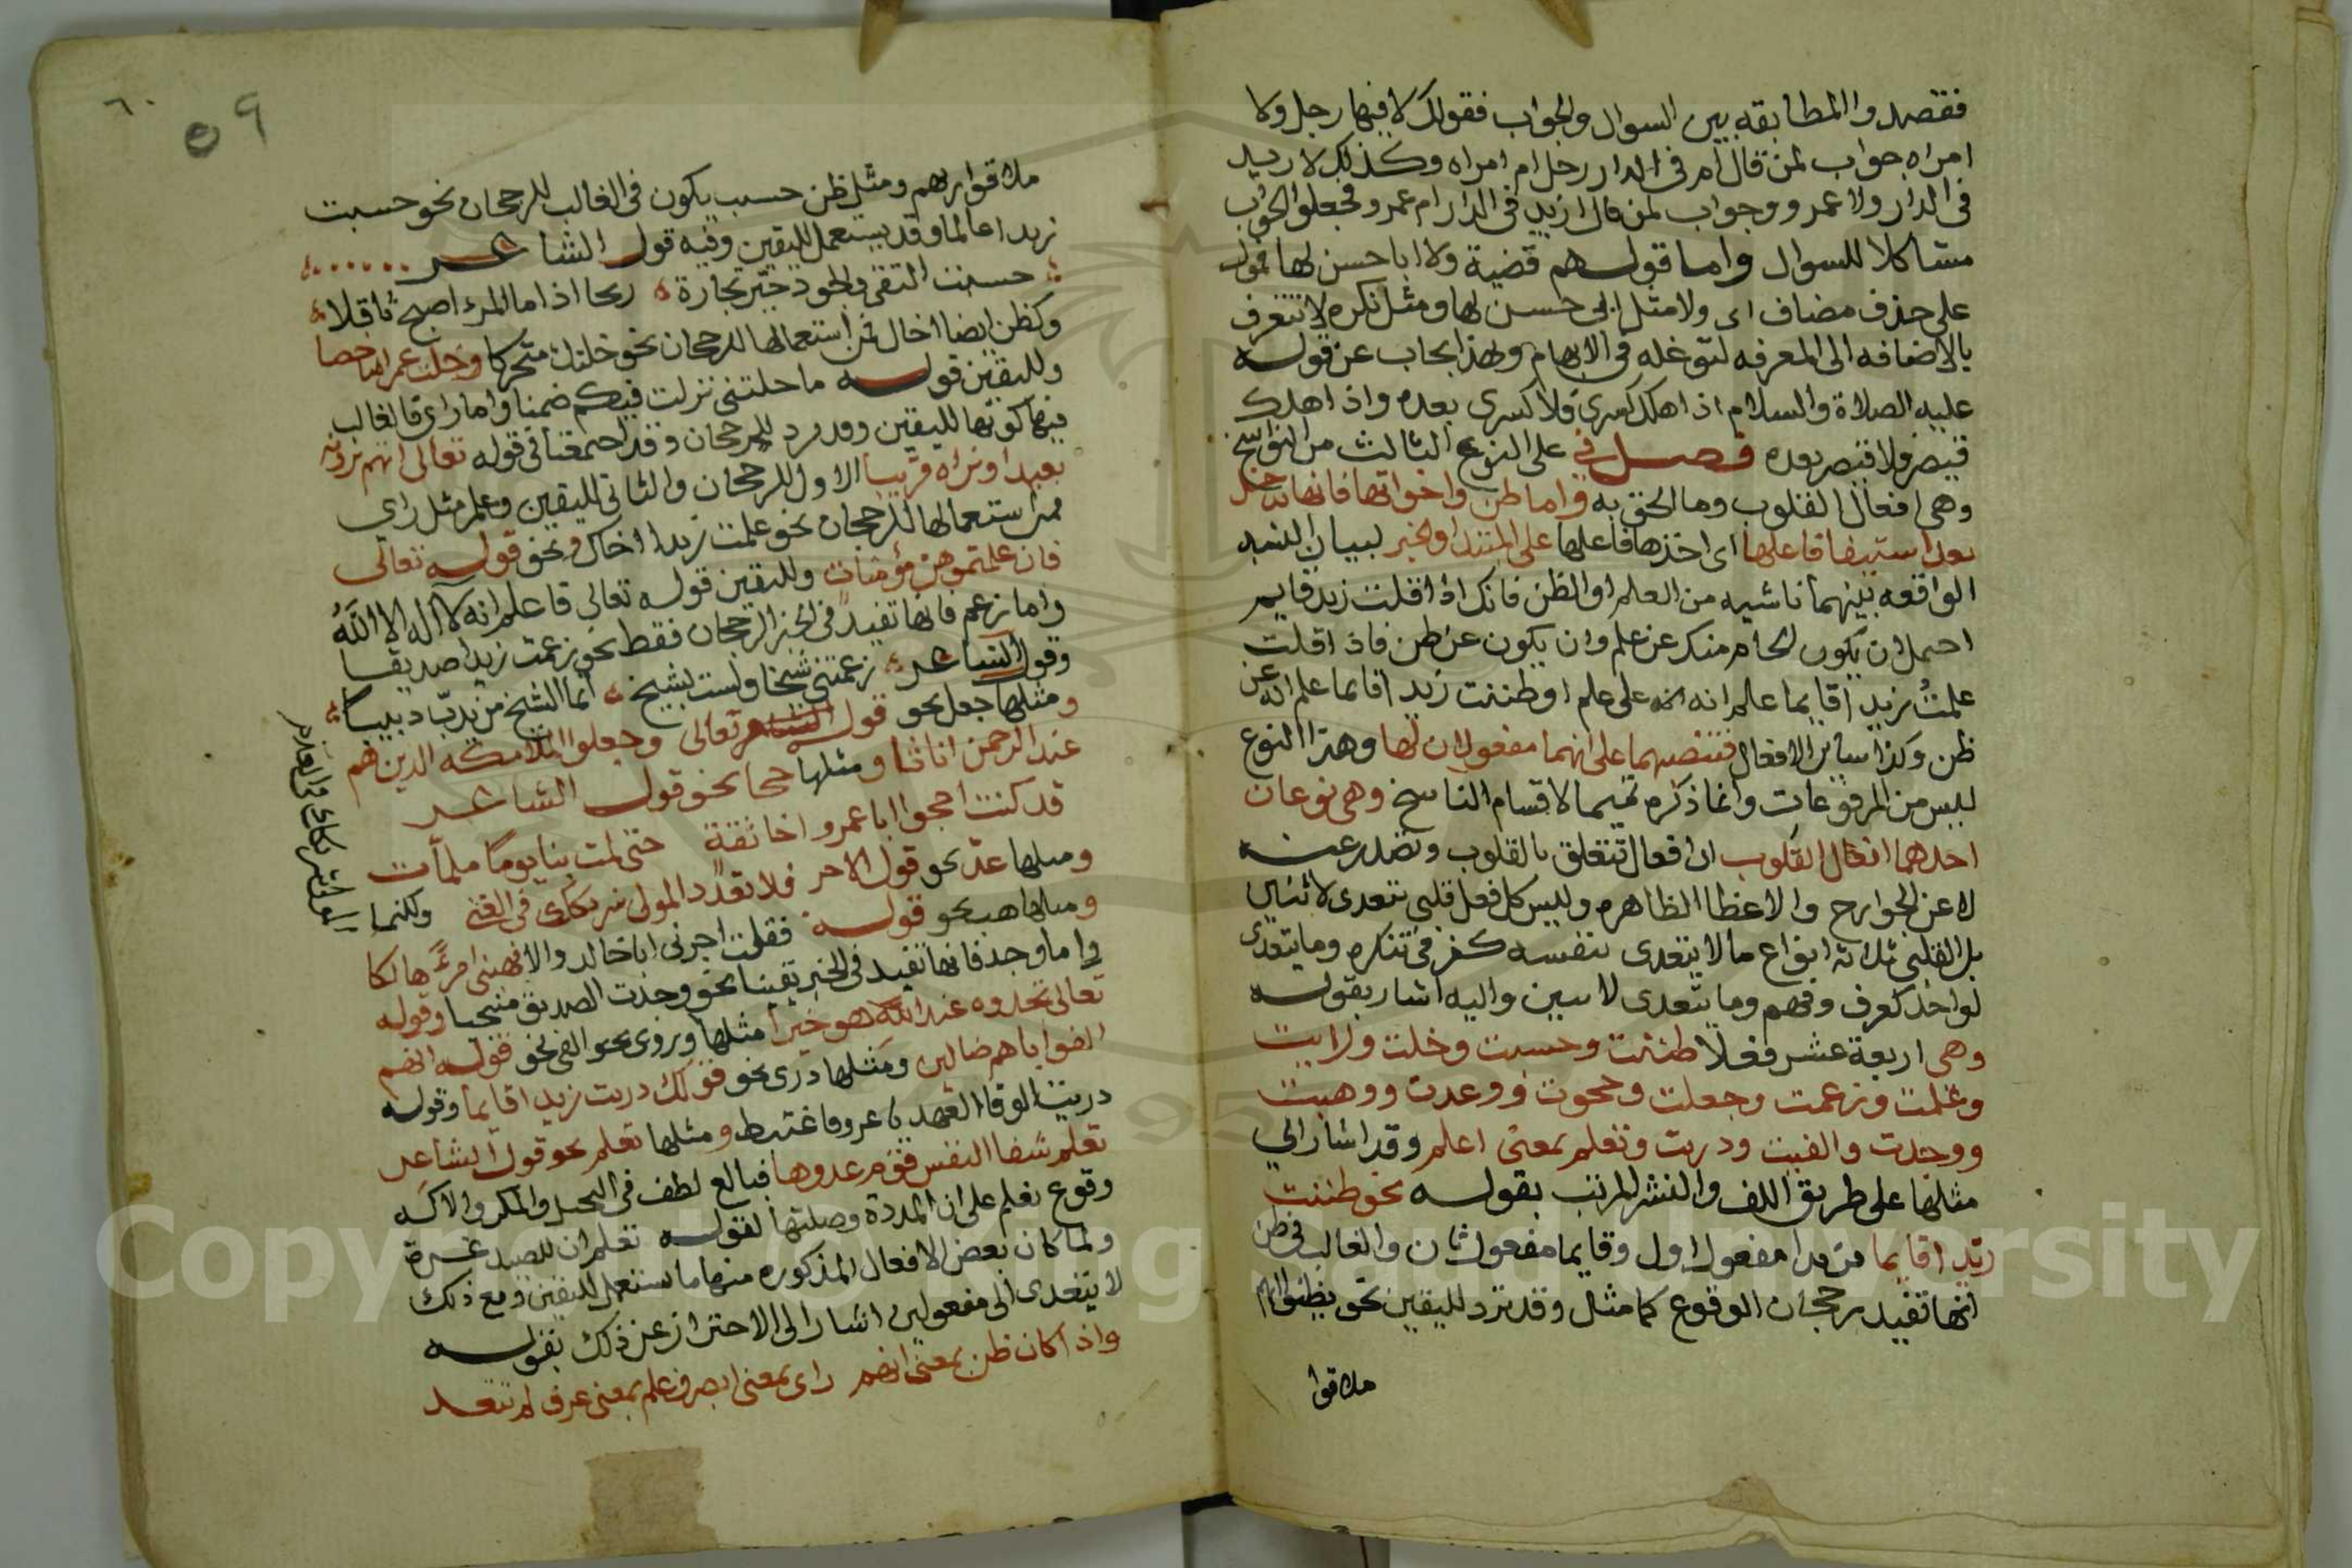 فقصدوا المطابقه بين السوال والجواب فقولك لا فيها رجل ولا
امراه جواب لمن قال ام في الدار رجل ام امراه وكذلك لا زيد
في الدار ولا عمرو وجواب لمن قال ازيد في الدار ام عمرو فجعلوا الجواب
مشاكلا للسوال واما قولهم قضية ولا ابا حسن لها فهو
على حذف مضاف اى ولا مثل ابى حسن لها ومثل نكره لا تتعرف
بالاضافه الى المعرفه لتوغله في الابهام وبهذا يجاب عن قوله
عليه الصلاة والسلام اذا هلك كسرى فلا كسرى بعده واذا هلك
قيصر فلا قيصر بعده فصل في على النوع الثالث من النواسخ
وهى افعال القلوب وما الحق به واما ظن واخواتها فانها تدخل
بعد استيفا فاعلها اى اخذها فاعلها على المبتدا والخبر لبيان
الواقعه بينهما ناشيه من العلم او الظن فانك اذا قلت زيد قايم
احتمل ان يكون الحكم منك عن علم وان يكون عن ظن فاذا قلت
علمتُ زيدا قايما علم انه على علم او ظننت زيدا قايما علم انه عن
ظن وكذا ساير الافعال فتنصبهما على انهما مفعولان لها وهذا النوع
ليس من المرفوعات وانما ذكره تتميما لاقسام الناسخ وهى نوعان
احدهما افعال القلوب اى افعال تتعلق بالقلوب وتصدر عنه
لا عن الجوارح والاعظا الظاهره وليس كل فعل قلبي يتعدى لاثنين
بل القلبي ثلاثة انواع ما لا يتعدى بنفسه كفكر في تنكره وما يتعدى
لواحد كعرف وفهم وما يتعدى لاثنين واليه اشار بقوله
وهى اربعة عشر فعلا ظننت وحسبت وخلت ورايت
وعلمت وزعمت وجعلت وحجوت وعددت ووهبت
ووجدت والفيت ودريت وتعلم بمعنى اعلم وقد اشار الي
مثلها على طريق اللف والنشر المرتب بقوله نحو ظننت
زيدا قايما فزيدا مفعول اول وقايما مفعول ثان والغالب في ظن
انها تفيد رجحان الوقوع كما مثل وقد ترد لليقين نحو يظنون انهم
ملاقوا
٦٠
٥٩
ملاقوا ربهم ومثل ظن حسب يكون في الغالب للرجحان نحو حسبت
زيدا عالما وقد يستعمل لليقين وفيه قول الشاعر
حسبت التقى والجود خير تجارة رباحا اذا ما المرء اصبح ثاقلا
وكظن ايضا خال فمن استعمالها للرجحان نحو خلتك متحركا وخلت عمرا شاخصا
ولليقين قوله ما خلتني نزلت فيكم ضمنا واما راى فالغالب
فيها كونها لليقين وقد ترد للرجحان وقد اجتمعتا في قوله تعالى انهم يرونه
بعيدا ونراه قريبا الاول للرجحان والثاني لليقين وعلم مثل راي
فمن استعمالها للرجحان نحو علمت زيدا اخاك ونحو قوله تعالى
فان علمتموهن مؤمنات ولليقين قوله تعالى فاعلم انه لا اله الا اللهُ
واما زعم فانها تفيد في الخبر الرجحان فقط نحو زعمت زيدا صديقا
وقول الشاعر زعمتني شيخا ولست بشيخ انما الشيخ من يدبّ دبيبا
ومثلها جعل نحو قوله تعالى وجعلوا الملائكه الذين هم
عند الرحمن اناثا ومثلها حجا نحو قول الشاعر
قد كنت احجوا ابا عمرو اخا ثقة حتى المت بنا يوما ملمات
ومثلها عدّ نحو قول الاخر فلا تعدد المولى شريكك في الغنى ولكنما
المولى شريكك في العدم
ومثلها هب نحو قوله فقلت اجرنى ابا خالد والا فهبني امرءً هالكا
واما وجد فانها تفيد في الخبر يقينا نحو وجدت الصديق منجيا وقوله
تعالى تجدوه عند الله هو خيرا مثلها ومثلها الفى نحو قوله انهم
الفوا اباهم ضالين ومثلها درى نحو قولك دريت زيدا قايما وقوله
دريت الوفا العهد يا عرو فاغتبط ومثلها تعلم نحو قول الشاعر
تعلم شفا النفس قهر عدوها فبالغ بلطف في التحيل والمكر والاكثر
وقوع تعلم على ان المشددة وصلتها كقوله تعلم ان للصيد غرة
ولما كان بعض الافعال المذكوره منها ما يستعمل لليقين ومع ذلك
لا يتعدى الى مفعولين اشار الى الاحتراز عن ذلك بقوله
واذا كان ظن بمعنى اتهم راى بمعنى ابصر وعلم بمعنى عرف لم تتعد
Copyright © King Saud University